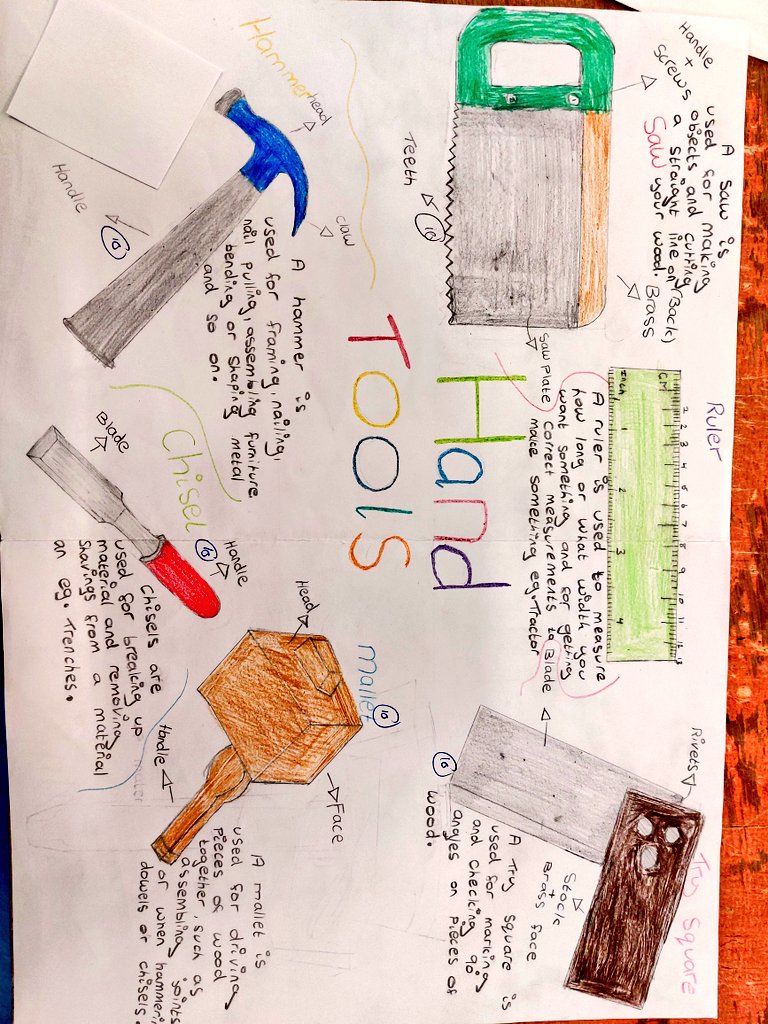 Handle
+
Screws
A saw is
used for making
objects and cutting
a straight line on
Saw your wood.
(Back)
Brass
Teeth
10
Saw Plate
Ruler
CM 1 2 3 4 5 6 7 8 9 10 11 12 13
Inch 1 2 3 4
A ruler is used to measure
how long or what width you
want something and for getting
correct measurements to
make something eg. Tractor
Try Square
Rivets
Blade
10
Stock
+
Brass face
A Try Square is
used for marking
and checking 90°
angles on pieces of
wood.
Hand
Tools
Hammer
head
claw
Handle
10
A hammer is
used for framing, nailing,
nail pulling, assembling furniture,
bending or shaping metal
and so on.
Chisel
Blade
Handle
10
Chisels are
used for breaking up
material and removing
shavings from a material
an eg. Trenches.
Mallet
10
Head
Face
Handle
A mallet is
used for driving
pieces of wood
together, such as
assembling joints
or when hammerin
dowels or chisels.